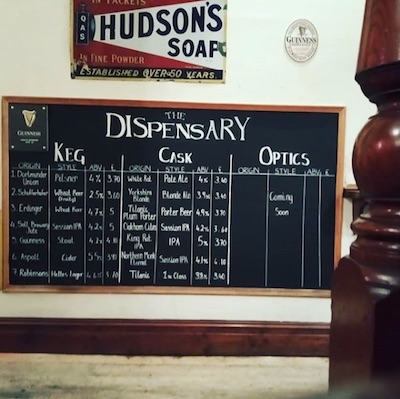 IN PACKETS
QAS
HUDSON'S
SOAP
IN FINE POWDER
ESTABLISHED OVER 50 YEARS.
GUINNESS
GUINNESS
THE
DISPENSARY
KEG CASK OPTICS
ORIGIN STYLE ABV £ ORIGIN STYLE ABV £ ORIGIN STYLE ABV £
1. Dortmunder Union Pilsner 4% 3.70 White Rat Pale Ale 4% 3.40
2. Schofferhofer Wheat Beer 2.5% 3.60 Yorkshire Blonde Blonde Ale 3.9% 3.40
3. Erdinger Wheat Beer 4.7% 5 Titanic Plum Porter Porter Beer 4.9% 3.70
4. Salt Brewery Jute Session IPA 4.2% 5 Oakham Citra Session IPA 4.2% 3.60
5. Guinness Stout 4.2% 4.10 King Rat IPA IPA 5% 3.70
6 Aspall Cider 5.5% Northern Monk Eternal Session IPA 4.1% 4.10
7 Robinsons Helles Lager Titanic 1st Class 3.9% 3.40
Coming
Soon